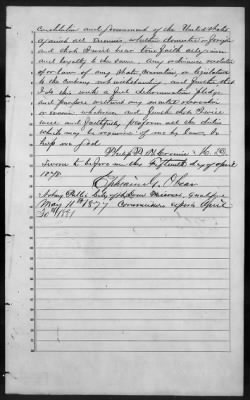 constitution and government of the United States
against all enemies, whether domestic or foreign
and that I will bear true faith allegiance
and loyalty to the same. Any ordinance resolution
or law of any State Convention or Legislature
to the contrary notwithstanding and further that
I do this with a full determination pledge
and purpose without any mental reservation
or evasion whatsoever and further that I will
well and faithfully perform all the duties
which may be required of me by law, So
help me God
Philip D. M. D.
Sworn to before me this fifteenth day of April
1878
Ephraim G.
City of St Louis Missouri, qualified
May 11th 1877 Commission expires April
30th 1881